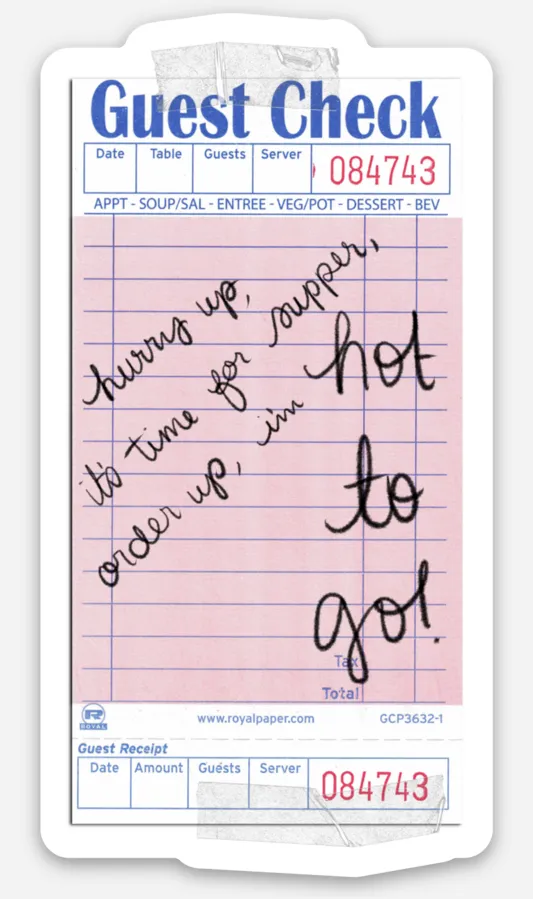 Guest Check
Date Table Guests Server 084743
APPT - SOUP/SAL - ENTREE - VEG/POT - DESSERT - BEV
hurry up,
it's time for supper,
order up, i'm
hot
to
go!
Tax
Total
R ROYAL www.royalpaper.com GCP3632-1
Guest Receipt
Date Amount Guests Server 084743